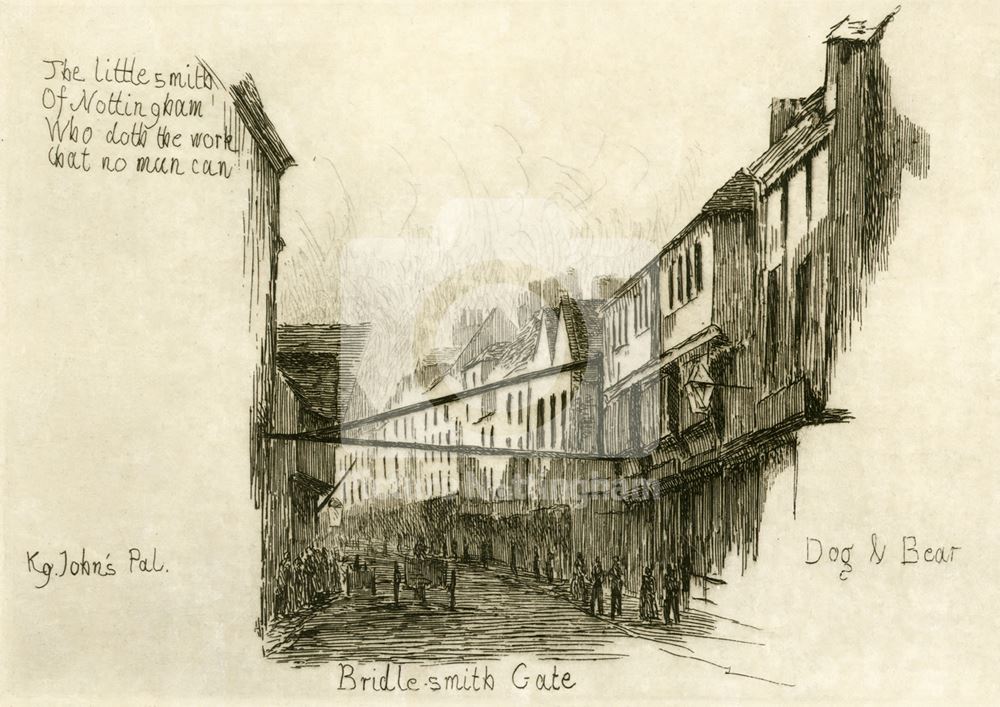 The little smith
Of Nottingham
Who doth the work
that no man can
Kg. John's Pal.
Dog & Bear
Bridle-smith Gate
Nottingham